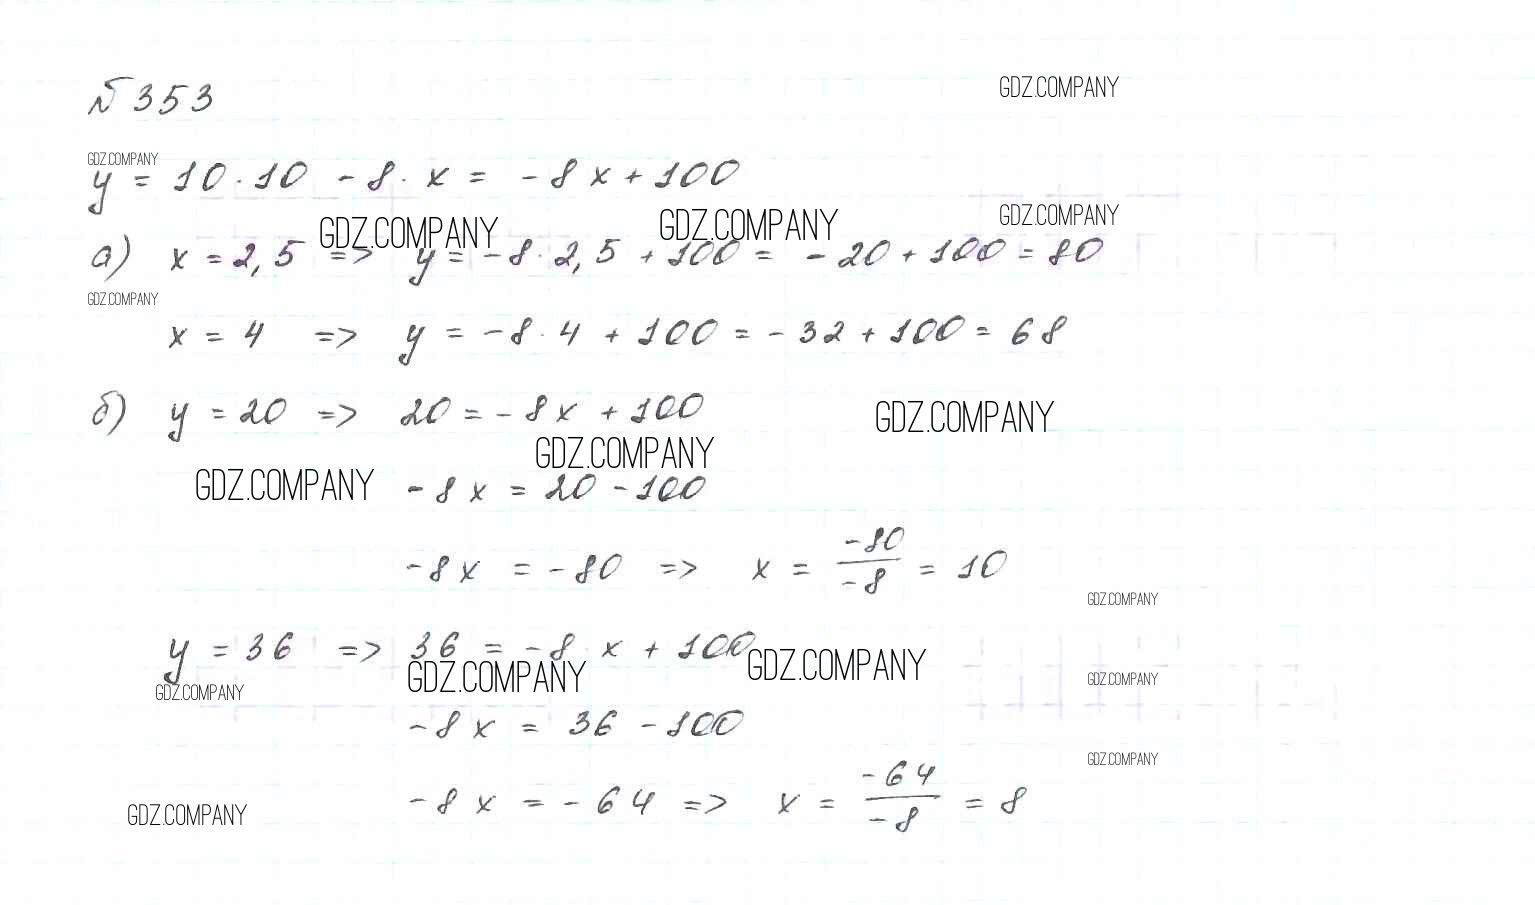 №353
GDZ.COMPANY
GDZ.COMPANY
y = 10·10 - 8·x = -8x + 100
GDZ.COMPANY GDZ.COMPANY GDZ.COMPANY
а) x = 2,5 => y = -8·2,5 + 100 = -20 + 100 = 80
GDZ.COMPANY
x = 4 => y = -8·4 + 100 = -32 + 100 = 68
б) y = 20 => 20 = -8x + 100
GDZ.COMPANY
GDZ.COMPANY
GDZ.COMPANY
-8x = 20 - 100
-8x = -80 => x = -80/-8 = 10
GDZ.COMPANY
y = 36 => 36 = -8·x + 100
GDZ.COMPANY GDZ.COMPANY
GDZ.COMPANY
GDZ.COMPANY
-8x = 36 - 100
GDZ.COMPANY
-8x = -64 => x = -64/-8 = 8
GDZ.COMPANY